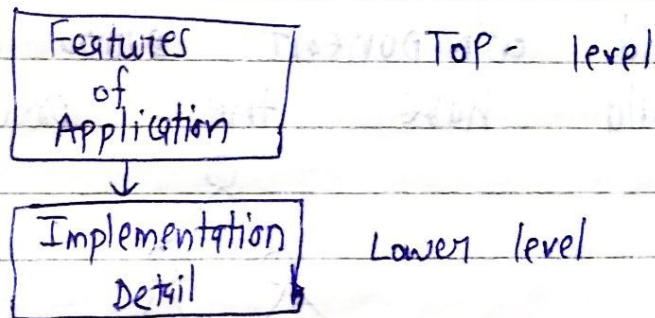 Features
of
Application
Top - level
Implementation
Detail
Lower level